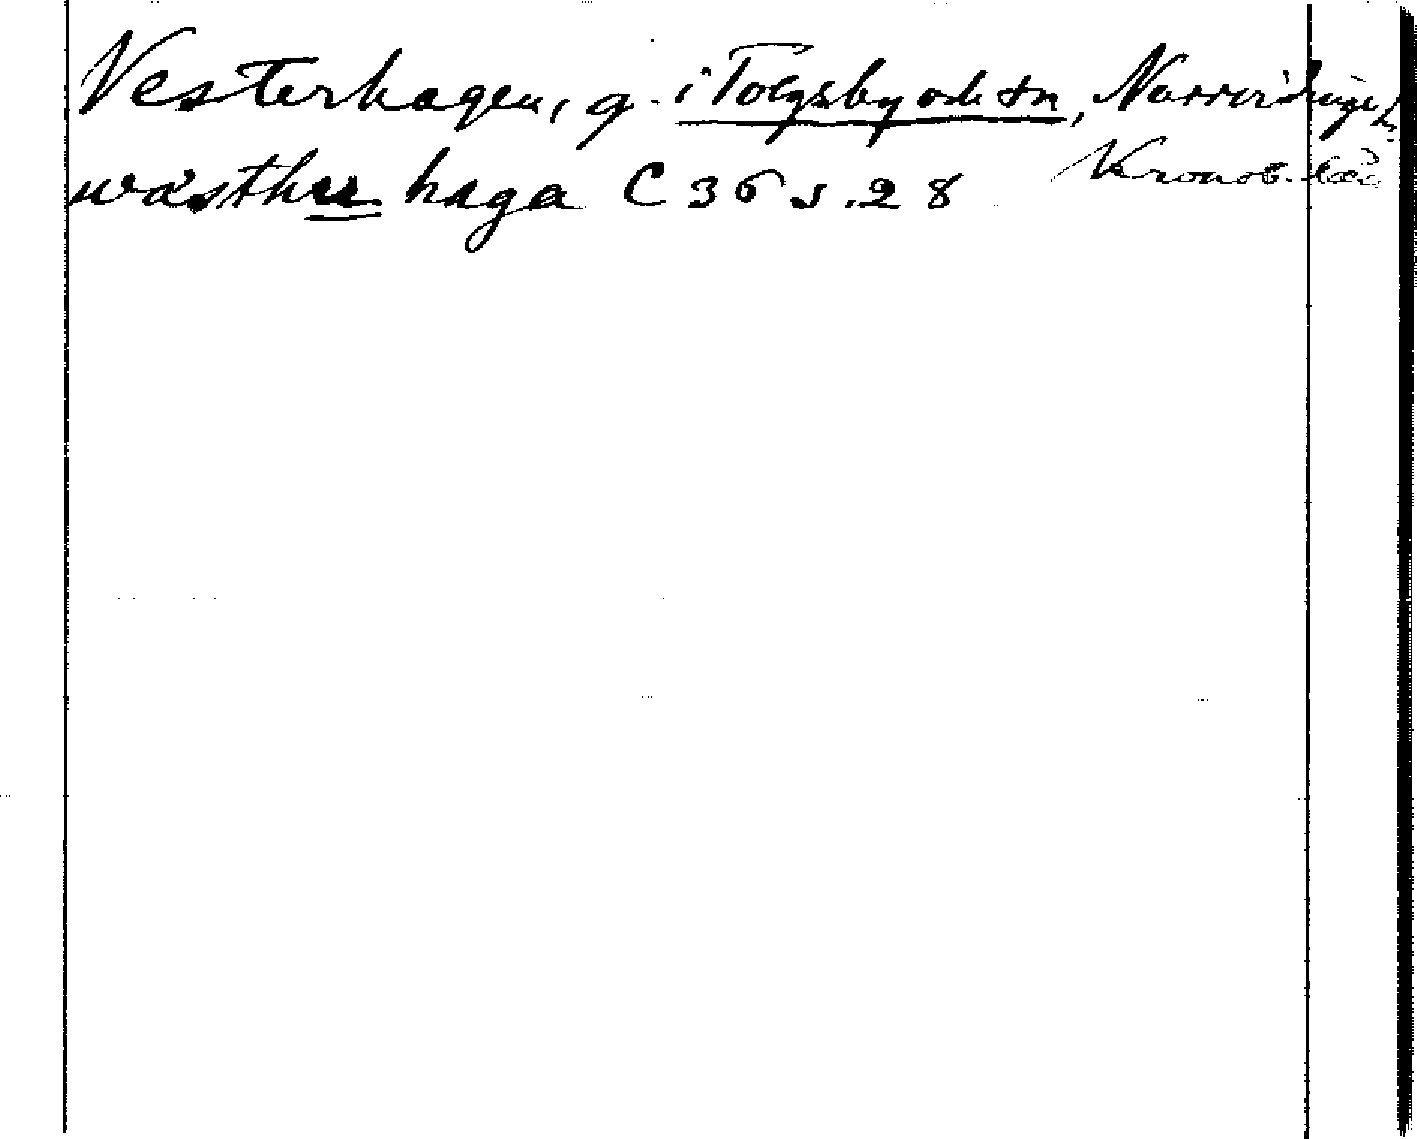 Vesterhagen, g. i Tolgsby och sn, Norrvidinge h.
wästhre haga C 36 s. 28 Kronob. län